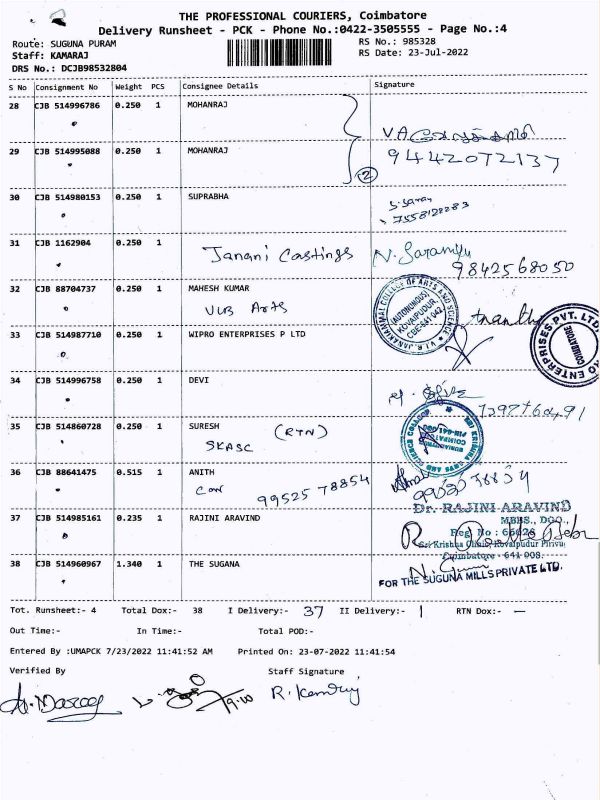 THE PROFESSIONAL COURIERS, Coimbatore
Delivery Runsheet - PCK - Phone No.:0422-3505555 - Page No.:4
Route: SUGUNA PURAM RS No.: 985328
Staff: KAMARAJ RS Date: 23-Jul-2022
DRS No.: DCJB98532804
S No Consignment No Weight PCS Consignee Details Signature
28 CJB 514996786 0.250 1 MOHANRAJ
29 CJB 514995088 0.250 1 MOHANRAJ 9442072137
2
30 CJB 514980153 0.250 1 SUPRABHA
31 CJB 1162904 0.250 1 Janani Castings
9842568050
32 CJB 88704737 0.250 1 MAHESH KUMAR
VLB Arts
33 CJB 514987710 0.250 1 WIPRO ENTERPRISES P LTD
34 CJB 514996758 0.250 1 DEVI
35 CJB 514860728 0.250 1 SURESH (RTN)
SKASC
36 CJB 88641475 0.515 1 ANITH
99525 78854
37 CJB 514985161 0.235 1 RAJINI ARAVIND
Dr. RAJINI ARAVIND
MBBS., DGO.,
Reg No : 66626
Sri Krishna Clinic, Kovaipudur Pirivu
Coimbatore - 641 008.
38 CJB 514960967 1.340 1 THE SUGANA
FOR THE SUGUNA MILLS PRIVATE LTD.
Tot. Runsheet:- 4 Total Dox:- 38 I Delivery:- 37 II Delivery:- 1 RTN Dox:- —
Out Time:- In Time:- Total POD:-
Entered By :UMAPCK 7/23/2022 11:41:52 AM Printed On: 23-07-2022 11:41:54
Verified By Staff Signature